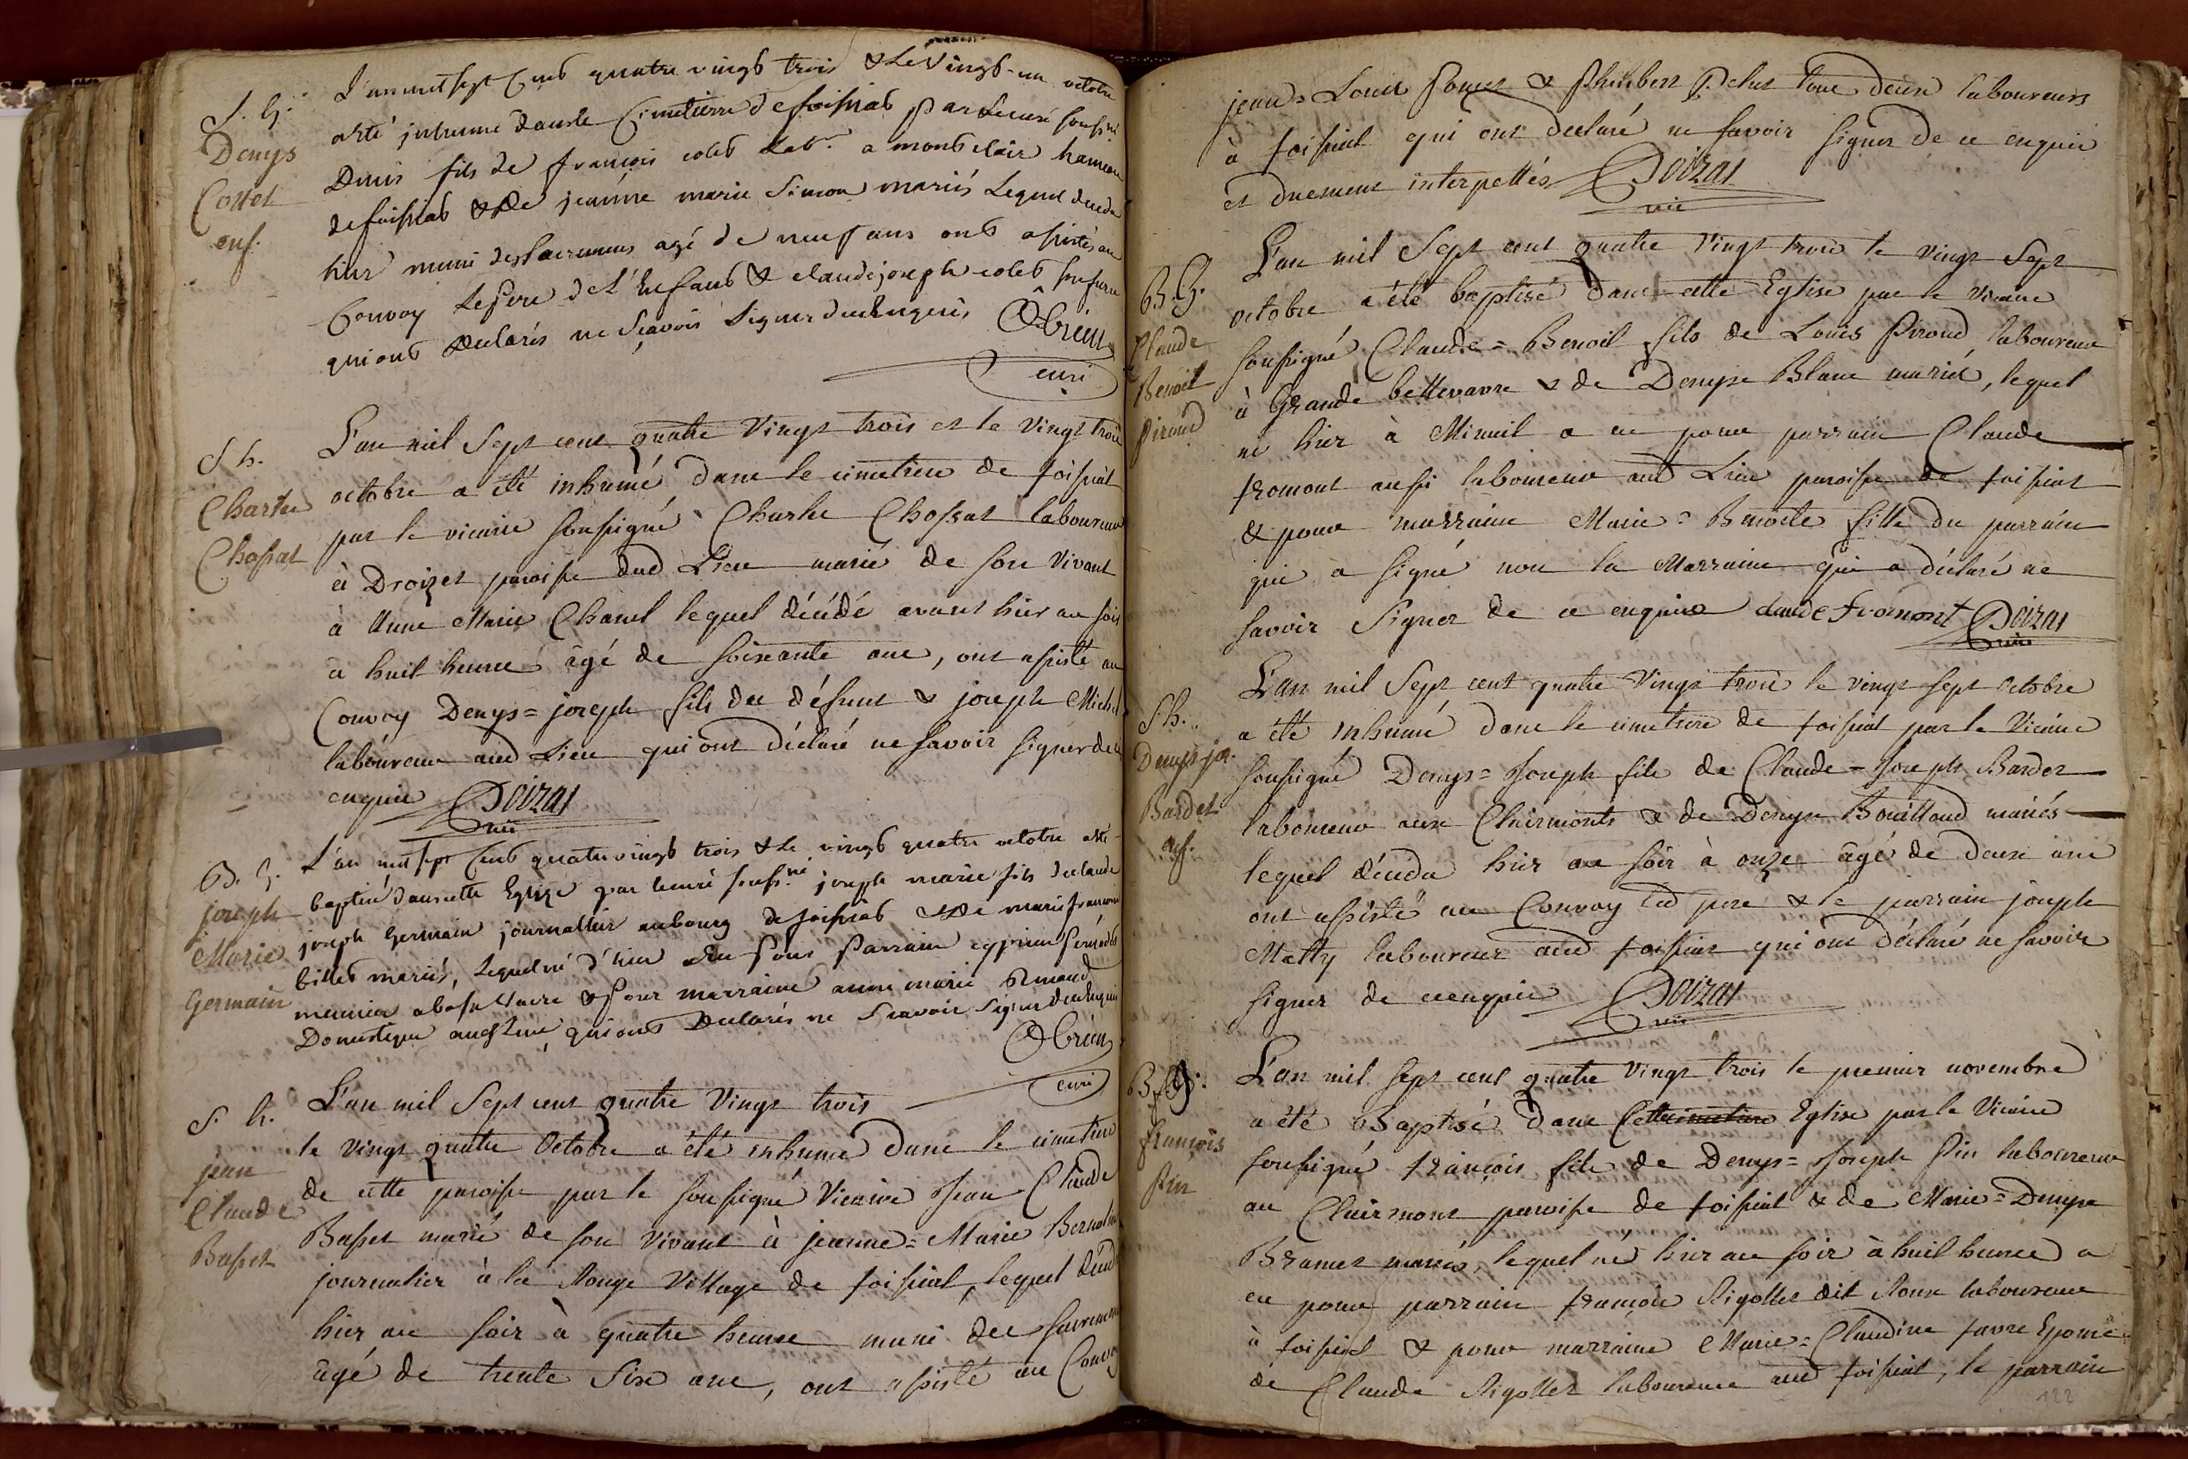 S. h.
Denys
Cottet
enf.
L'an mil sept cens quatre vingt trois & le vingt-un octobre
a été inhumé dans le Cimetierre de foissiat par le curé souss.né
Denis fils de françois colet lab.r a mont clair hameau
de foissiat & de jeanne marie Simon mariés Lequel décédé
hier muni des sacremens agé de neuf ans ont assistés au
Convoy Le pere de l'Enfant & claude joseph colet
qui ont déclarés ne sçavoir signer de ce enquis Obrien
curé
S. h.
Charles
Chossat
L'an mil sept cent quatre vingt trois et le vingt trois
octobre a été inhumé dans le cimetiere de foissiat
par le vicaire soussigné Charles Chossat laboureur
à Droizet paroisse dud Lieu marié de son vivant
à Anne Marie Chanel lequel décédé avant hier au soir
à huit heures âgé de soixante ans, ont assisté au
Convoy Denys=joseph fils du défunt & joseph Michel
laboureur aud Lieu qui ont déclaré ne savoir signer de ce
enquis Doizat
vic
B. h.
joseph
Marie
Germain
L'an mil sept cens quatre vingt trois & le vingt quatre octobre a été
baptisé dans cette Eglize par le curé souss.né joseph marie fils de claude
joseph Germain journallier au bourg de foissiat & de marie françoise
billet mariés, Lequel né d'hier a Eu pour Parrain cyprien
meunier & pour marraine anne marie
Domestique aud Lieu, qui ont déclarés ne sçavoir signer de ce enquis
Obrien
curé
S. h.
jean
Claude
Basset
L'an mil sept cent quatre vingt trois
le vingt quatre octobre a été inhumé dans le cimetiere
de cette paroisse par le soussigné vicaire Jean Claude
Basset marié de son vivant à jeanne=Marie
journalier à la Rouge village de foissiat, lequel décédé
hier au soir à quatre heures muni des sacremens
âgé de trente six ans, ont assisté au Convoy
jean=Louis & Philibert tous deux laboureurs
à foissiat qui ont declaré ne savoir signer de ce enquis
et duement interpellés Doizat
vic
B. h.
Claude
Benoit
Piroud
L'an mil sept cent quatre vingt trois le vingt sept
octobre a été baptisé dans cette Eglise par le vicaire
soussigné Claude=Benoit fils de Louis Piroud laboureur
à Grande bellevavre & de Denyse Blanc mariés, lequel
né hier à Minuit a eu pour parrain Claude
fromont aussi laboureur aud Lieu paroisse de foissiat
& pour marraine Marie=Benoite fille du parrain
qui a signé non la Marraine qui a déclaré ne
savoir signer de ce enquise claude fromont Doizat
vic
S. h.
Denys jos.
Bardet
enf.
L'an mil sept cent quatre vingt trois le vingt sept octobre
a été inhumé dans le cimetiere de foissiat par le vicaire
soussigné Denys=Joseph fils de Claude=Joseph Bardet
laboureur aux Clairmonts & de Denyse Bouilloud mariés
lequel décéda hier au soir à onze âgé de deux ans
ont assisté au Convoy led pere & le parrain joseph
Matty laboureur aud foissiat qui ont déclaré ne savoir
signer de ce enquis Doizat
vic
françois
Pin
L'an mil sept cent quatre vingt trois le premier novembre
a été Baptisé dans Cette Eglise par le vicaire
soussigné françois fils de Denys=Joseph Pin laboureur
au Clairmont paroisse de foissiat & de Marie=Denyse
mariés, lequel né hier au soir à huit heures a
eu pour parrain françois Rigollet dit laboureur
à foissiat & pour marraine Marie=Claudine favre Epouse
de Claude Rigollet laboureur aud foissiat, le parrain
122